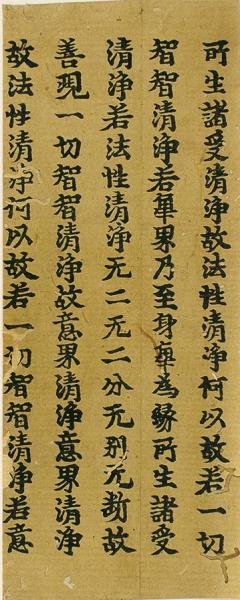 所生諸受清淨故法性清淨何以故若一切
智智清淨若觸界乃至身觸為緣所生諸受
清淨若法性清淨无二无二分无別无斷故
善現一切智智清淨故意界清淨意界清淨
故法性清淨何以故若一切智智清淨若意